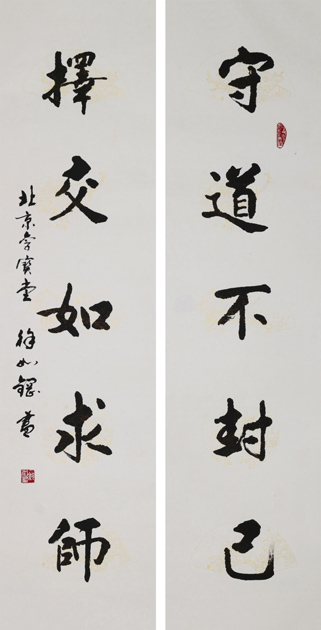 守道不封己
擇交如求師
北京 寶堂 徐如鋼書